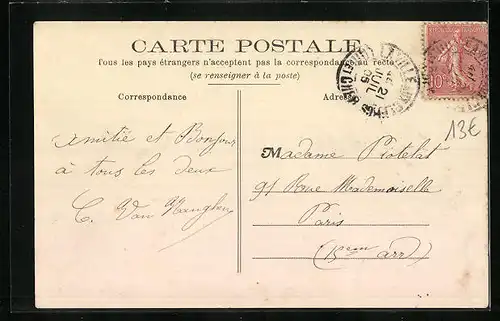 CARTE POSTALE
Tous les pays étrangers n'acceptent pas la correspondance au recto
(se renseigner à la poste)
Correspondance
Adresse
10
13€
21
JUIL
05
ET CHER
Amitié et Bonjour
à tous les deux
C. Van
Madame Piotelat
91 Rue Mademoiselle
Paris
(15eme arr)